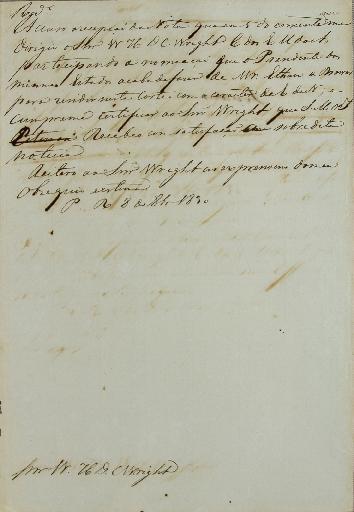 Acuso recepção da Nota que em 5 do corrente me
dirigio o Snr W. H. D. C. Wright E. dos E. U. da A.
participando a nomeação que o Presidente dos
mesmos Estados acaba de fazer de Mr. Ethan A. Brown
para rendir nesta Corte com o caracter de E. de N., e
cumpre me certificar ao Snr Wright que S. M. o I.
recebeo com satisfação sobredita
noticia.
Reitero ao Snr Wright as expressoens do meu
obsequio e estima
P. 8 de 1830
Snr W. H. D. C. Wright